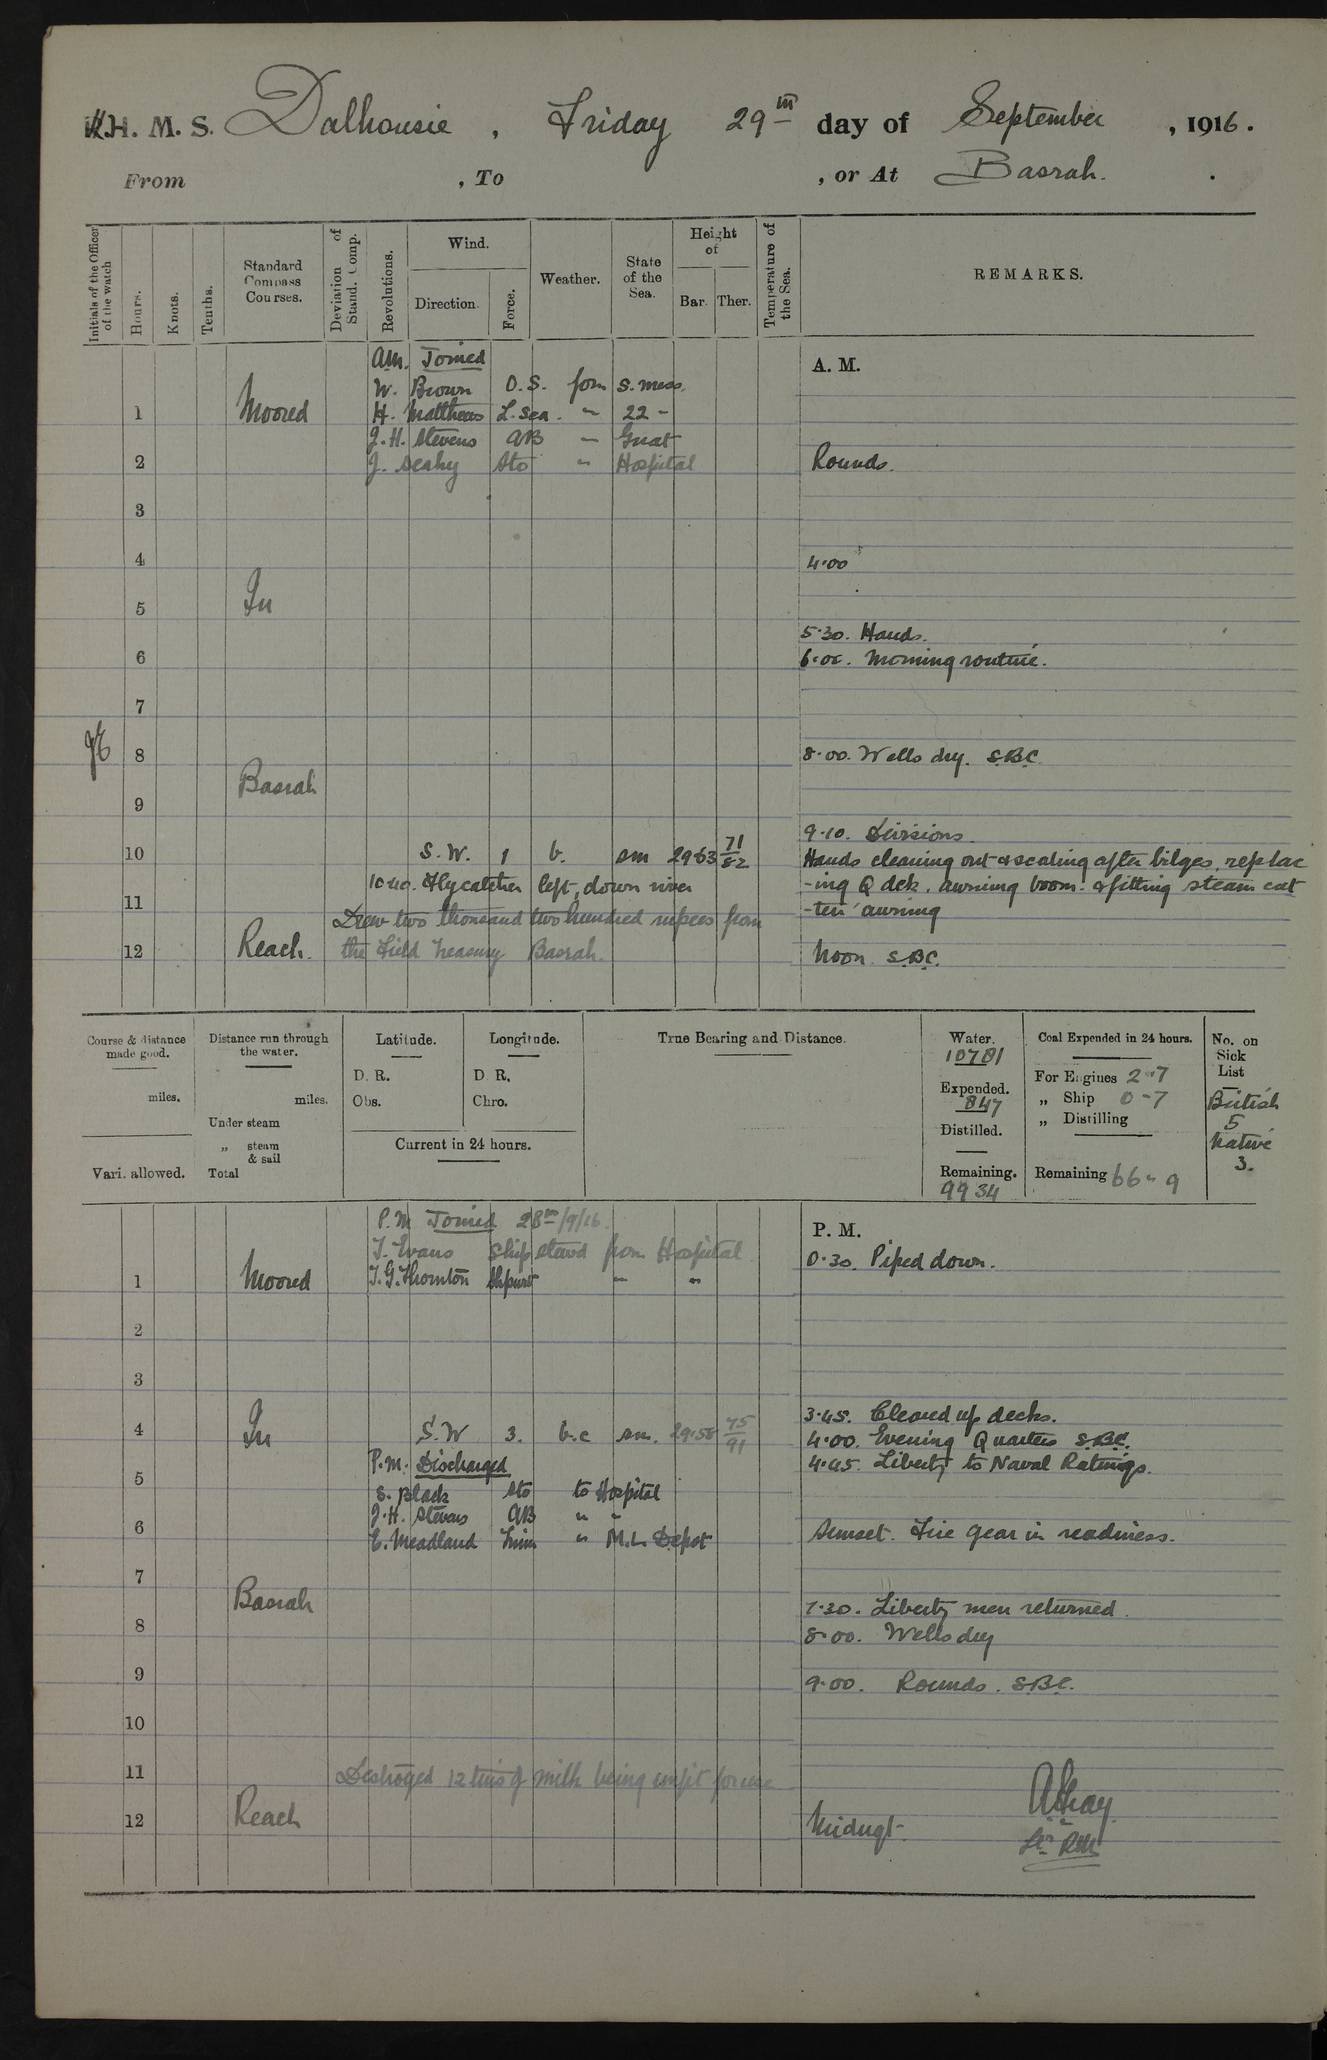 H. M. S. Dalhousie, Friday 29th day of September, 1916.
From , To , or At Basrah.
Initials of the Officer of the watch
Hours.
Knots.
Tenths.
Standard Compass Courses.
Deviation of Stand. Comp.
Revolutions.
Wind.
Direction.
Force.
Weather.
State of the Sea.
Height of
Bar. Ther.
Temperature of the Sea.
REMARKS.
A. M.
Am. Joined
W. Brown O.S. from S. mess.
1 Moored H. Matthews L. Sea. " 22 "
J. H. Stevens AB " Gnat
2 J. Seahy Sto " Hospital Rounds.
3
4 4.00
5 In
5.30. Hands.
6 6.00. Morning routine.
7
8 8.00. Wells dry. S.B.C.
Basrah
9
9.10. Divisions.
10 S.W. 1 b. sm 29.63 71/82 Hands cleaning out & scaling after bilges, replac
10.40. Flycatcher left, down river -ing Q dek. awning boom. & fitting steam cut
11 -ter awning
Drew two thousand two hundred rupees from
12 Reach. the Field Treasury Basrah. Noon S.B.C.
Course & distance made good.
miles.
Vari. allowed.
Distance run through the water.
miles.
Under steam
„ steam & sail
Total
Latitude.
D. R.
Obs.
Longitude.
D. R.
Chro.
Current in 24 hours.
True Bearing and Distance.
Water.
10781
Expended.
847
Distilled.
Remaining.
9934
Coal Expended in 24 hours.
For Engines 2-7
„ Ship 0-7
„ Distilling
Remaining 66-9
No. on Sick List
British
5
Native
3.
P.M. Joined 28th/9/16. P. M.
T. Evans Ship stewd from Hospital 0.30. Piped down.
1 Moored T. G. Thornton Shpwrt " "
2
3
3.45. Cleared up decks.
4 In S.W 3. b.c sm. 29.58 75/91 4.00. Evening Quarters S.B.C.
P.M. Discharged 4.45. Liberty to Naval Ratings.
5
S. Black Sto to Hospital
J.H. Stevens AB " "
6 E. Meadland " M.L. Depot Sunset. Fire gear in readiness.
7
Basrah 7.30. Liberty men returned.
8 8.00. Wells dry
9 9.00. Rounds. S.B.C.
10
11 Destroyed 12 tins of milk being unfit for use
12 Reach Midngt.